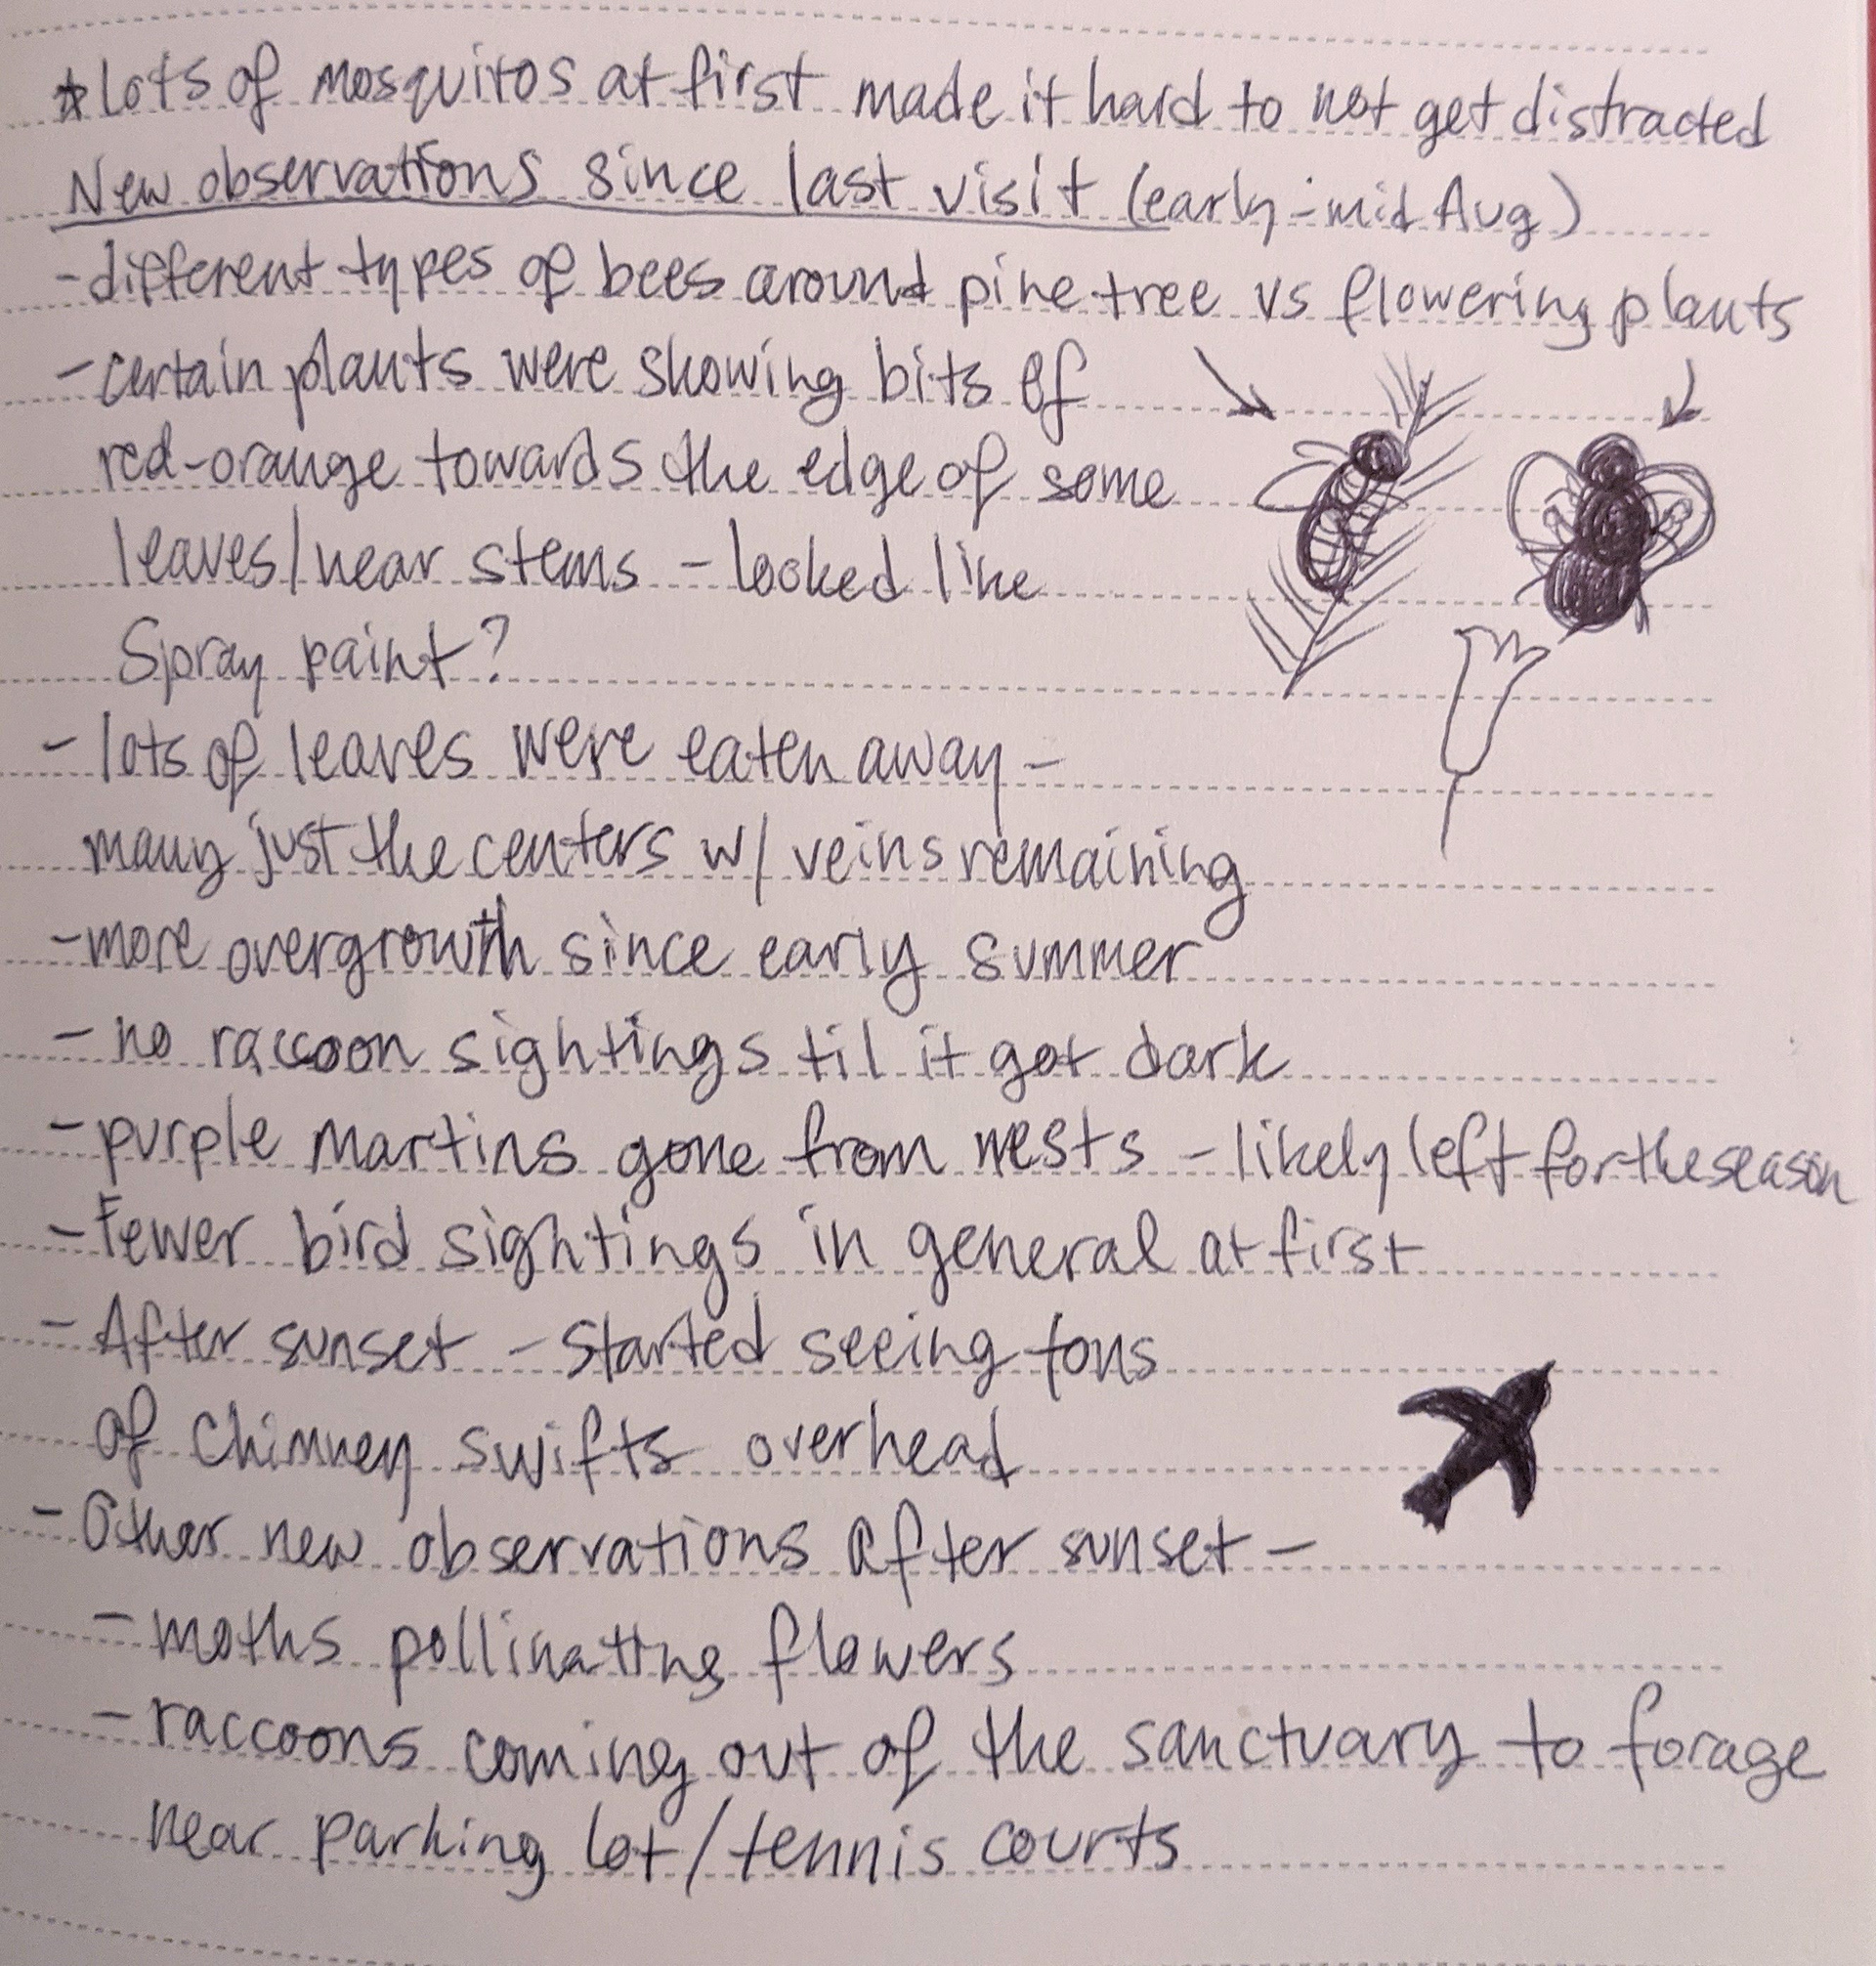 *Lots of mosquitos at first made it hard to not get distracted
New observations since last visit (early-mid Aug)
-different types of bees around pine tree vs flowering plants
-certain plants were showing bits of
red-orange towards the edge of some
leaves/near stems - looked like
Spray paint?
-lots of leaves were eaten away-
many just the centers w/ veins remaining
-more overgrowth since early summer
-no raccoon sightings til it got dark
-purple martins gone from nests -likely left for the season
-Fewer bird sightings in general at first
-After sunset -started seeing tons
of chimney swifts overhead
-Other new observations after sunset-
-moths pollinating flowers
-raccoons coming out of the sanctuary to forage
near parking lot/tennis courts